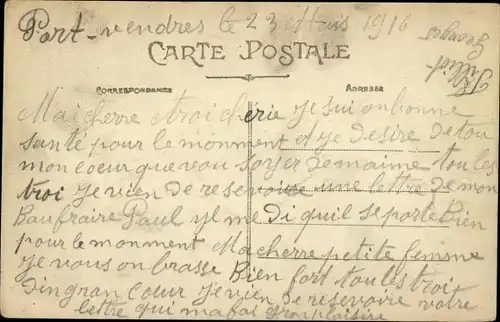 Port-vendres le 23 Mars 1916
CARTE POSTALE
CORRESPONDANCE
ADRESSE
Georges
Maicherre etroi chérie Je sui onbonne
santé pour le momment et Je desire De tou
mon coeur que vou soyer Demaime tou les
troi Je vien De reservoire une lettre De mon
Baufraire Paul yl me di quil se porte Bien
pour le momment Macherre petite femme
Je vous on brasse Bien fort tou les troi
Dingran coeur Je vien De reservoire votre
lettre qui ma fai gran plaisire